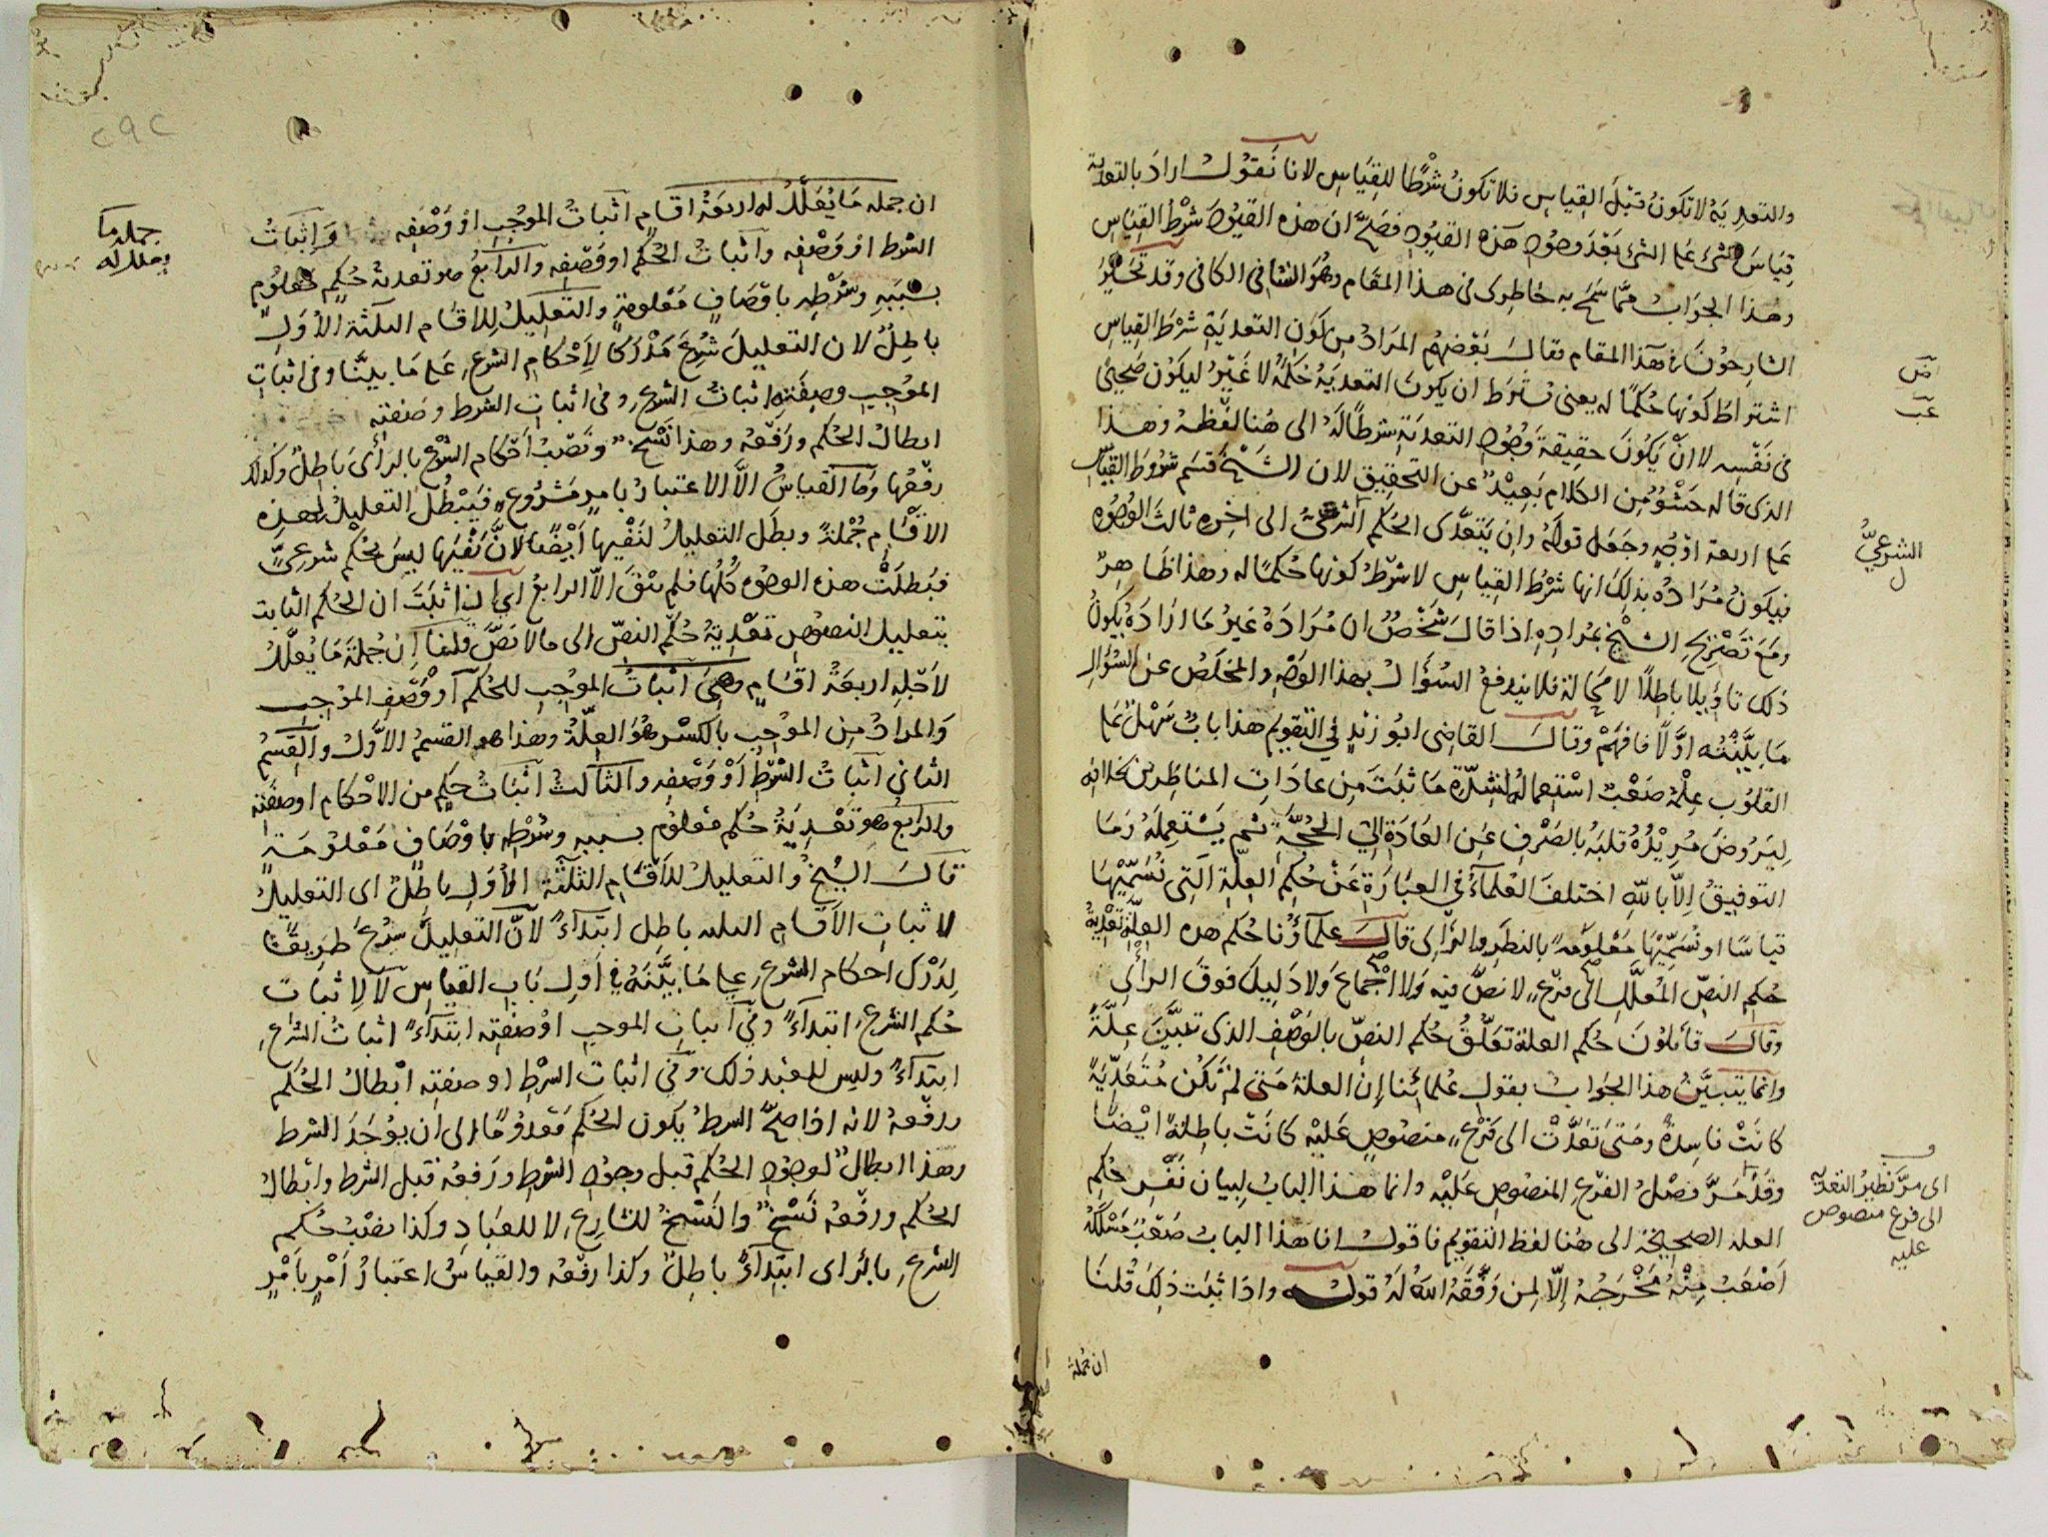 والتعدية لا تكون قبل القياس فلا تكون شرطا للقياس لانا نقول اراد بالتعدية
قياس الشئ على الشئ بعد وجود هذه القيود فصح ان هذه القيود شرط القياس
وهذا الجواب مما سمح به خاطرى فى هذا المقام وهو الشافى الكافى وقد تحير
الشارحون فى هذا المقام فقال بعضهم المراد من كون التعدية شرط القياس
اشتراط كونها حكما له يعنى يشترط ان يكون التعدية حكمه لا غير ليكون صحيحا
فى نفسه لا ان يكون حقيقة وجود التعدية شرطا له الى هنا لفظه وهذا
الذى قاله حشو من الكلام بعيد عن التحقيق لان الشيخ قسم شروط القياس
على اربعة اوجه وجعل قوله وان يتعدى الحكم الشرعى الى اخره ثالث الوجوه
فيكون مراده بذلك انها شرط القياس لا شرط كونها حكما له وهذا ظاهر
ومع تصريح الشيخ بمراده اذا قال شخص ان مراده غير ما اراده يكون
ذلك تاويلا باطلا لا محالة فلا يندفع السؤال بهذا الوجه والمخلص عن السؤال
ما بينته اولا فافهم وقال القاضى ابو زيد فى التقويم هذا باب سهل على
القلوب علمه صعب استعماله لشدة ما ثبت من عادات المناظرين بخلافه
ليروض مريده قلبه بالصرف عن العادة الى الحجة ثم يستعمله وما
التوفيق الا بالله اختلف العلماء فى العبارة عن حكم العلة التى نسميها
قياسا او نسميها معلومة بالنظر والراى قال علماؤنا حكم هذه العلة تعدية
حكم النص المعلل الى فرع لا نص فيه ولا اجماع ولا دليل فوق الراى
وقال قائلون حكم العلة تعلق حكم النص بالوصف الذى تبين علة
وانما يتبين هذا الجواب بقول علمائنا ان العلة متى لم تكن متعدية
كانت فاسدة ومتى تعدت الى فرع منصوص عليه كانت باطلة ايضا
وقد مر فصل الفرع المنصوص عليه وانما هذا الباب لبيان نفس حكم
العلة الصحيحة الى هنا لفظ التقويم فاقول انا هذا الباب صعب مسلكه
اصعب منه مخرجه الا لمن وفقه الله له قوله واذا ثبت ذلك قلنا
ان جملة
ض
عب
الشرعى
اى مر نظير التعدية
الى فرع منصوص
عليه
ان جملة ما يعلل له اربعة اقسام اثبات الموجب او وصفه واثبات
الشرط او وصفه واثبات الحكم او وصفه والرابع هو تعدية حكم معلوم
بسببه وشرطه باوصاف معلومة والتعليل للاقسام الثلثة الاول
باطل لان التعليل شرع مدركا لاحكام الشرع على ما بينا وفى اثبات
الموجب وصفته اثبات الشرع وفى اثبات الشرط وصفته
ابطال الحكم ورفعه وهذا نسخ ونصب احكام الشرع بالراى باطل وكذلك
رفعها وما القياس الا الاعتبار بامر مشروع فيبطل التعليل لهذه
الاقسام جملة وبطل التعليل لنفيها ايضا لان نفيها ليس بحكم شرعى
فبطلت هذه الوجوه كلها فلم يبق الا الرابع اى اذا ثبت ان الحكم الثابت
بتعليل النصوص تعدية حكم النص الى ما لا نص قلنا ان جملة ما يعلل
لاجله اربعة اقسام وهى اثبات الموجب للحكم او وصف الموجب
والمراد من الموجب بالكسر هو العلة وهذا هو القسم الاول والقسم
الثانى اثبات الشرط او وصفه والثالث اثبات حكم من الاحكام او صفته
والرابع هو تعدية حكم معلوم بسببه وشرطه باوصاف معلومة
قال الشيخ والتعليل للاقسام الثلثة الاول باطل اى التعليل
لاثبات الاقسام الثلثة باطل ابتداء لان التعليل شرع طريقا
لدرك احكام الشرع على ما بينه فى اول باب القياس لا لاثبات
حكم الشرع ابتداء وفى اثبات الموجب او صفته ابتداء اثبات الشرع
ابتداء وليس للعبد ذلك وفى اثبات الشرط او صفته ابطال الحكم
ورفعه لانه اذا صح الشرط يكون الحكم معدوما الى ان يوجد الشرط
وهذا ابطال لوجود الحكم قبل وجود الشرط ورفعه قبل الشرط وابطال
الحكم ورفعه نسخ والنسخ للشارع لا للعباد وكذا نصب حكم
الشرع بالراى ابتداء باطل وكذا رفعه والقياس اعتبار امر بامر
جملة ما
يعلل له
٢٩٢